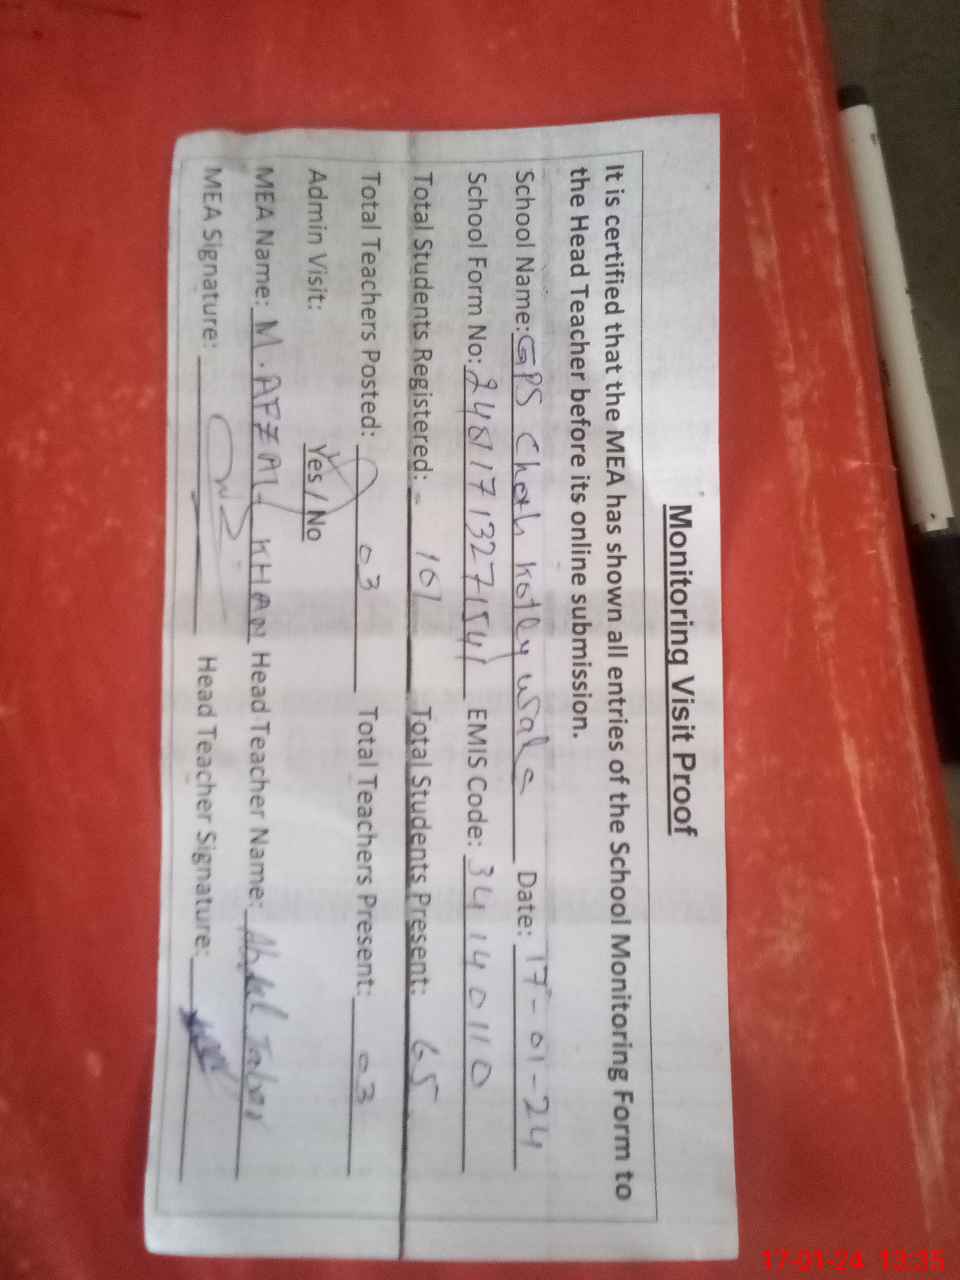 Monitoring Visit Proof
It is certified that the MEA has shown all entries of the School Monitoring Form to
the Head Teacher before its online submission.
School Name: GPS Chah Kotly wala Date: 17-01-24
School Form No: EMIS Code: 34140110
Total Students Registered: 101 Total Students Present: 65
Total Teachers Posted: 03 Total Teachers Present: 03
Admin Visit: Yes / No
MEA Name: M. AFZAL KHAN Head Teacher Name: Abdul
MEA Signature: Head Teacher Signature:
17-01-24 13:35